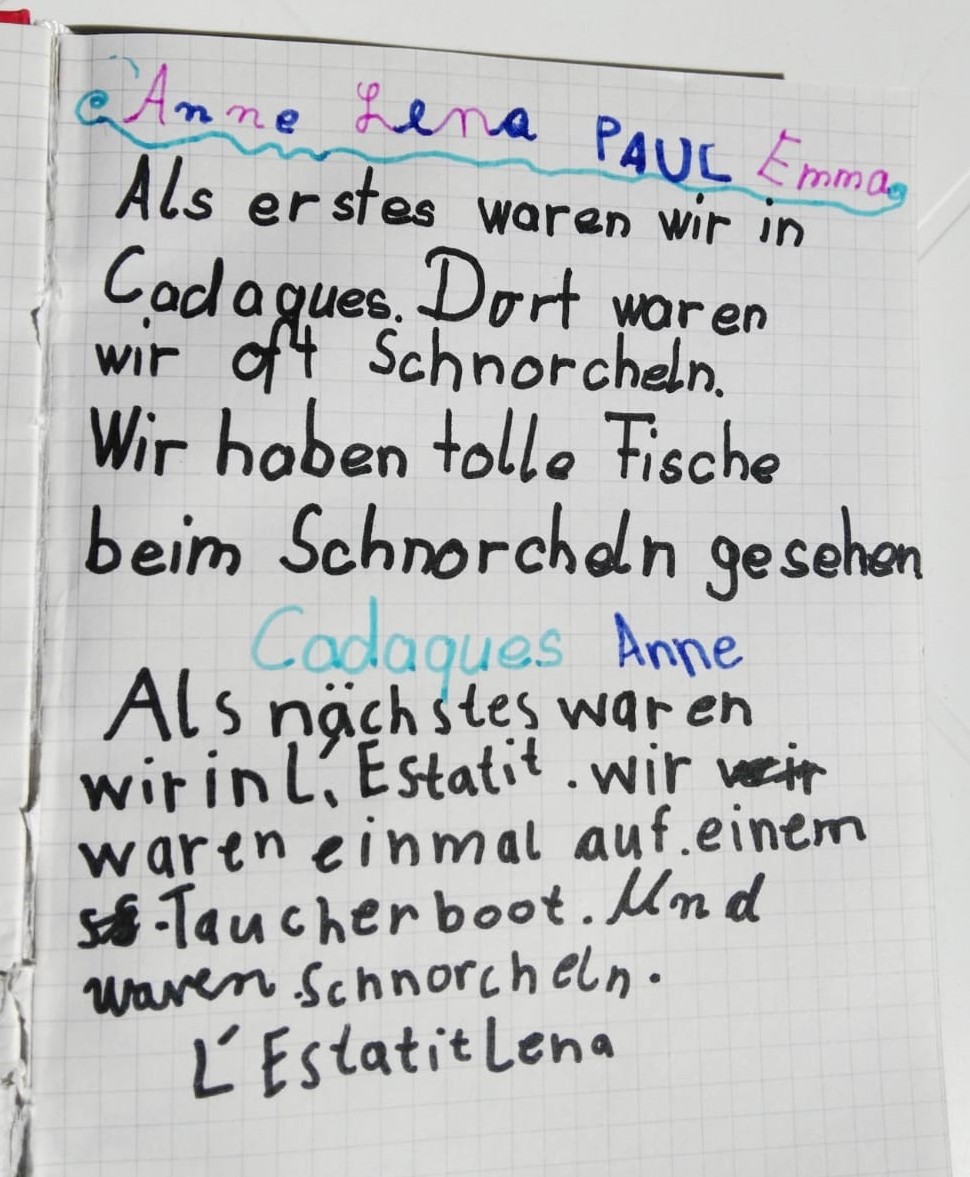 Anne Lena PAUL Emma
Als erstes waren wir in
Cadaques. Dort waren
wir oft Schnorcheln.
Wir haben tolle Fische
beim Schnorcheln gesehen
Cadaques Anne
Als nächstes waren
wir in L'Estatit. wir
waren einmal auf einem
Taucherboot. Und
waren Schnorcheln.
L'Estatit Lena